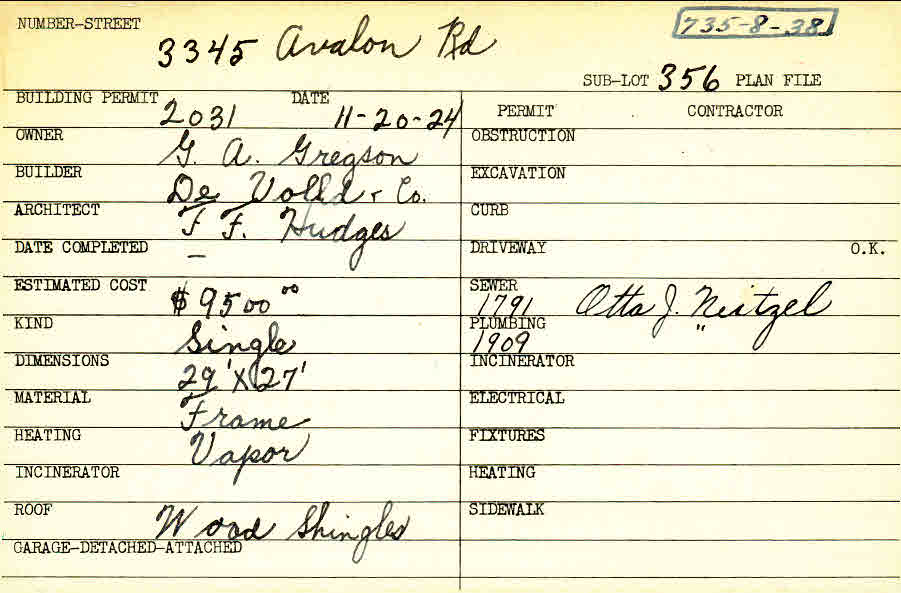 NUMBER-STREET 3345 Avalon Rd 735-8-38
SUB-LOT 356 PLAN FILE
BUILDING PERMIT 2031 DATE 11-20-24 PERMIT CONTRACTOR
OWNER G. A. Gregson OBSTRUCTION
BUILDER De Volld & Co. EXCAVATION
ARCHITECT F F. Hudges CURB
DATE COMPLETED – DRIVEWAY O.K.
ESTIMATED COST $9500 00 SEWER 1791 Otto J. Neitzel
KIND Single PLUMBING 1909 "
DIMENSIONS 29'X27' INCINERATOR
MATERIAL Frame ELECTRICAL
HEATING Vapor FIXTURES
INCINERATOR HEATING
ROOF Wood Shingles SIDEWALK
GARAGE-DETACHED-ATTACHED